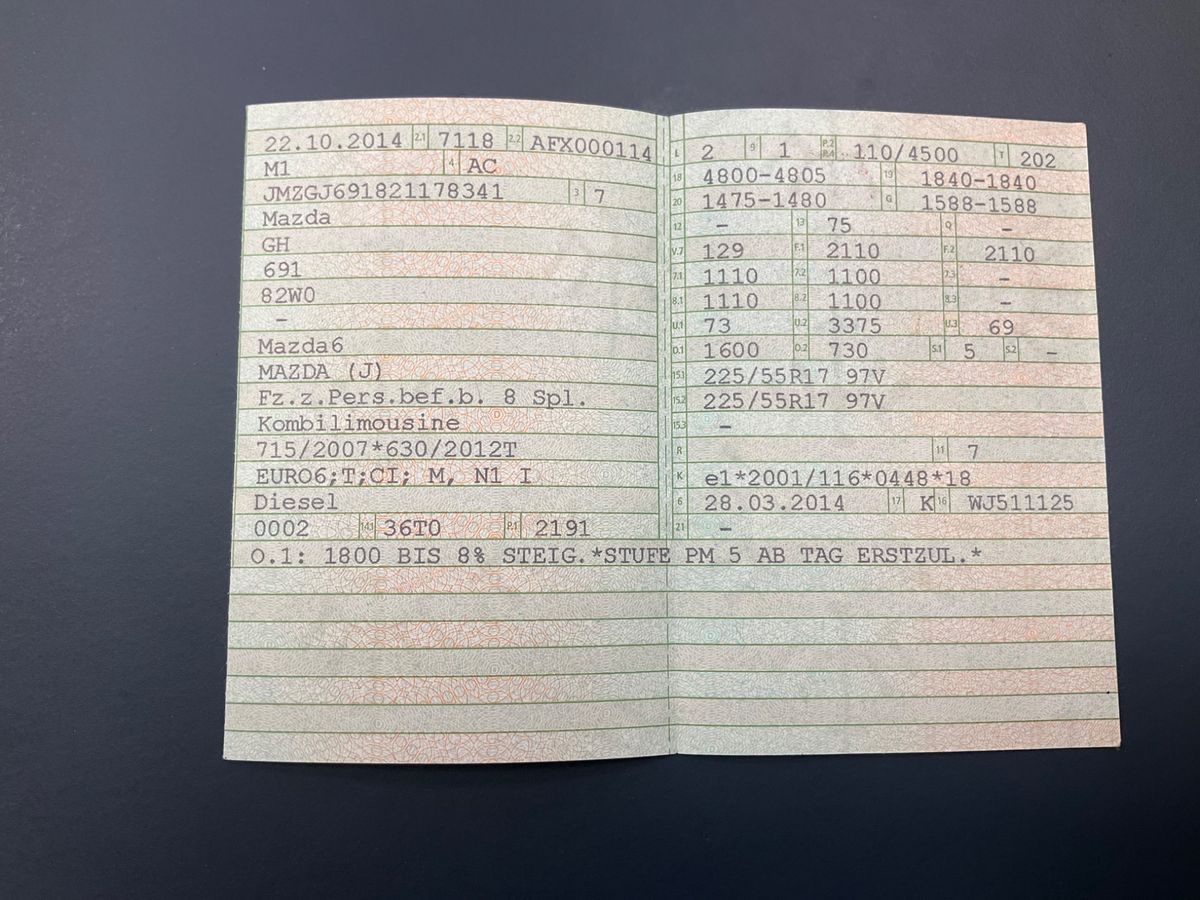 22.10.2014 2.1 7118 2.2 AFX000114
M1 4 AC
JMZGJ691821178341 3 7
Mazda
GH
691
82W0
–
Mazda6
MAZDA (J)
Fz.z.Pers.bef.b. 8 Spl.
Kombilimousine
715/2007*630/2012T
EURO6;T;CI; M, N1 I
Diesel
0002 14.1 36T0 P.1 2191
L 2 9 1 P.2 P.4 110/4500 T 202
18 4800-4805 19 1840-1840
20 1475-1480 G 1588-1588
12 – 13 75 Q –
V.7 129 F.1 2110 F.2 2110
7.1 1110 7.2 1100 7.3 –
8.1 1110 8.2 1100 8.3 –
U.1 73 U.2 3375 U.3 69
O.1 1600 O.2 730 S.1 5 S.2 –
15.1 225/55R17 97V
15.2 225/55R17 97V
15.3 –
R 11 7
K e1*2001/116*0448*18
6 28.03.2014 17 K 16 WJ511125
21 –
O.1: 1800 BIS 8% STEIG.*STUFE PM 5 AB TAG ERSTZUL.*